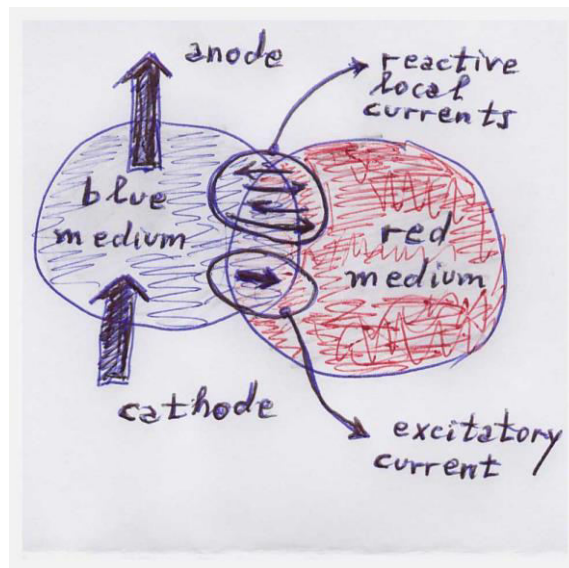 anode
reactive
local
currents
blue
medium
red
medium
cathode
excitatory
current